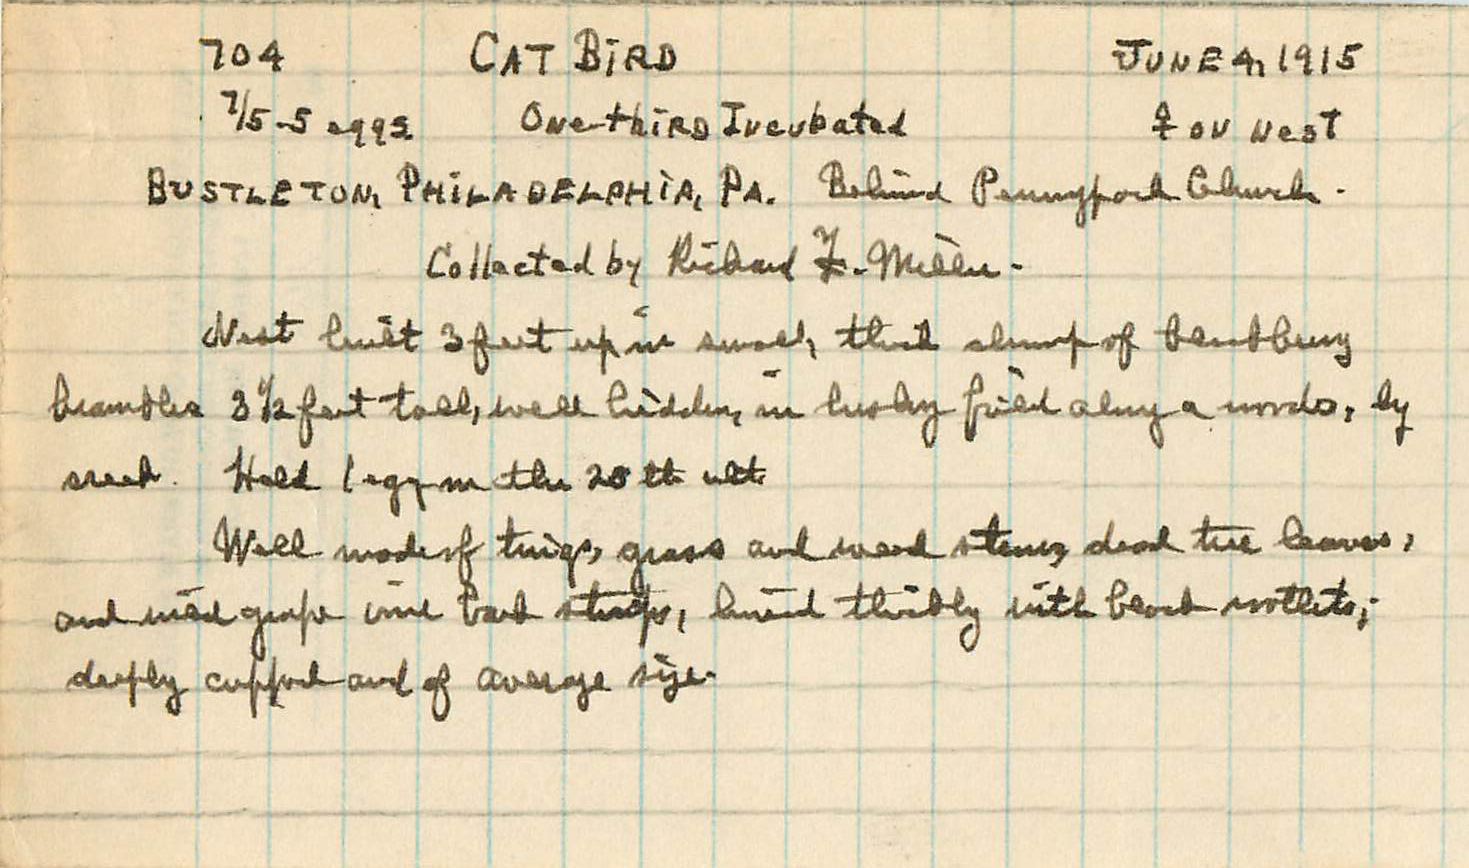 704 CAT BIRD JUNE 4, 1915
7/5-5 eggs One-third Incubated ♀ on nest
BUSTLETON, PHILADELPHIA, PA. Behind Pennypack Church.
Collected by Richard F. Miller.
Nest built 3 feet up in small, thick clump of blackberry
brambles 3 1/2 feet tall, well hidden, in bushy field along a woods, by
creek. Held 1 egg on the 28th ult.
Well made of twigs, grass and weed stems, dead tree leaves,
and wild grape vine bark strips, lined thickly with black rootlets;
deeply cupped and of average size.